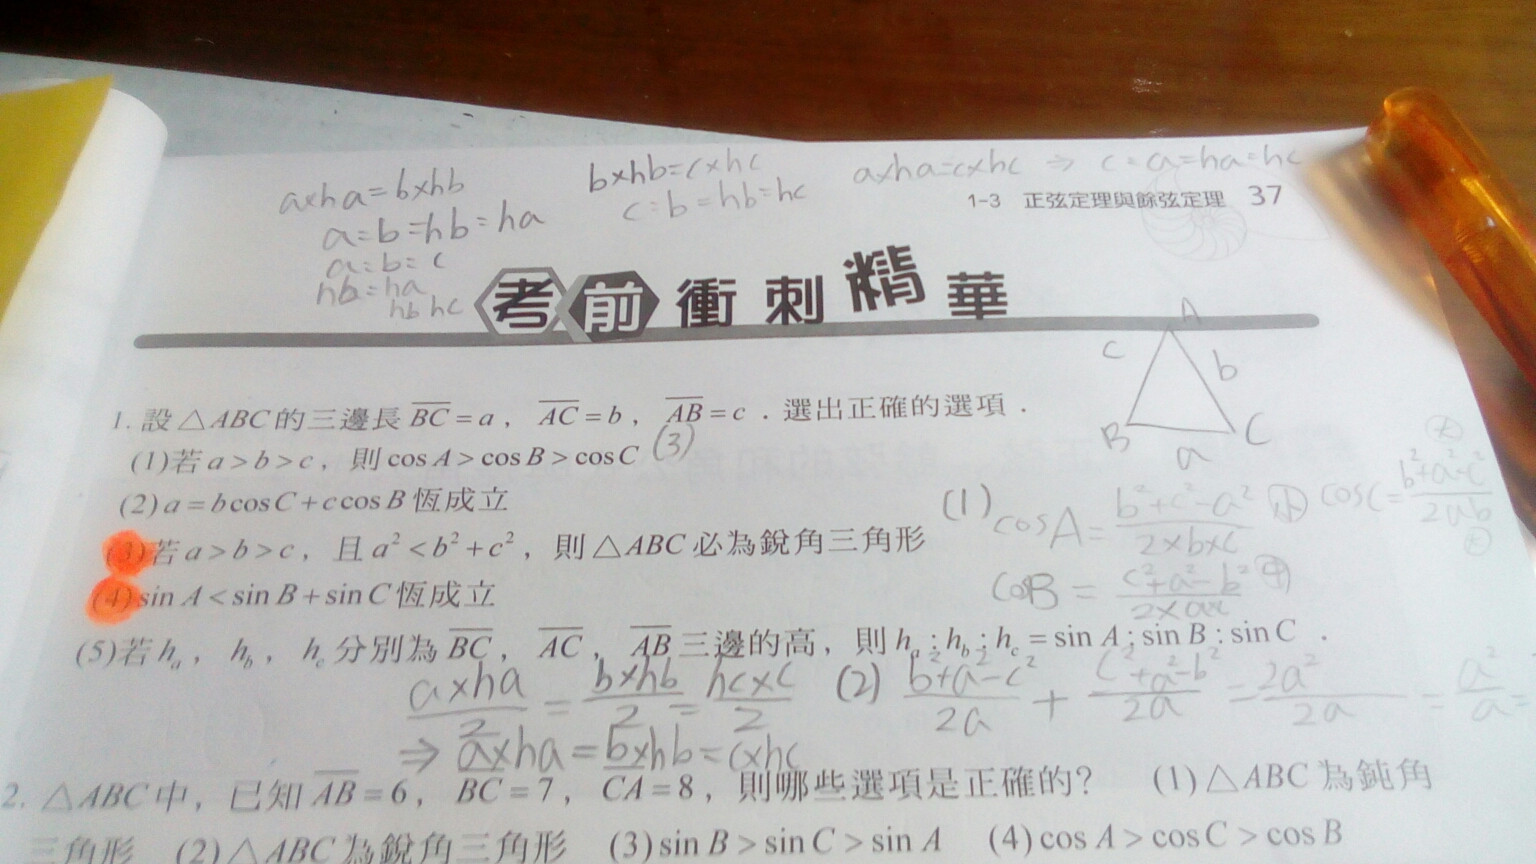 a×ha=b×hb
b×hb=c×hc
a×ha=c×hc ⇒ c:a=ha:hc
a:b=hb:ha
c:b=hb:hc
1-3 正弦定理與餘弦定理 37
a:b:c
hb:ha
hb hc
考前衝刺精華
A
c
b
B
C
a
1. 設△ABC的三邊長BC=a，AC=b，AB=c．選出正確的選項．
(1)若a>b>c，則cosA>cosB>cosC (3)
(2)a=bcosC+ccosB恆成立
(3)若a>b>c，且a²<b²+c²，則△ABC必為銳角三角形
(4)sinA<sinB+sinC恆成立
(5)若hₐ，h_b，h_c分別為BC，AC，AB三邊的高，則hₐ:h_b:h_c=sinA:sinB:sinC．
(1) cosA=(b²+c²-a²)/(2×b×c) 小 cosC=(b²+a²-c²)/(2ab) 大
CosB=(c²+a²-b²)/(2×ac) 中
(a×ha)/2=(b×hb)/2=(hc×c)/2
(2) (b²+a²-c²)/(2a)+(c²+a²-b²)/(2a)=2a²/(2a)=a²/a=
⇒ a×ha=b×hb=c×hc
2. △ABC中，已知AB=6，BC=7，CA=8，則哪些選項是正確的? (1)△ABC為鈍角
三角形 (2)△ABC為銳角三角形 (3)sinB>sinC>sinA (4)cosA>cosC>cosB